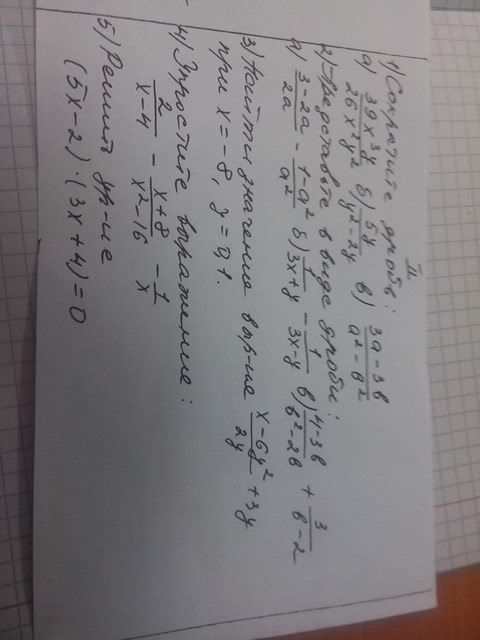 II
1) Сократите дробь:
а) 39x³y/26x²y² б) 5y/y²-2y в) 3a-3b/a²-b²
2) Представьте в виде дроби:
а) 3-2a/2a - 1-a²/a² б) 1/3x+y - 1/3x-y в) 4-3b/b²-2b + 3/b-2
3) Найти значение выр-ние x-6y²/2y + 3y
при x=-8, y=0,1.
4) Упростите выражение:
2/x-4 - x+8/x²-16 - 1/x
5) Решить ур-ние
(5x-2)·(3x+4)=0